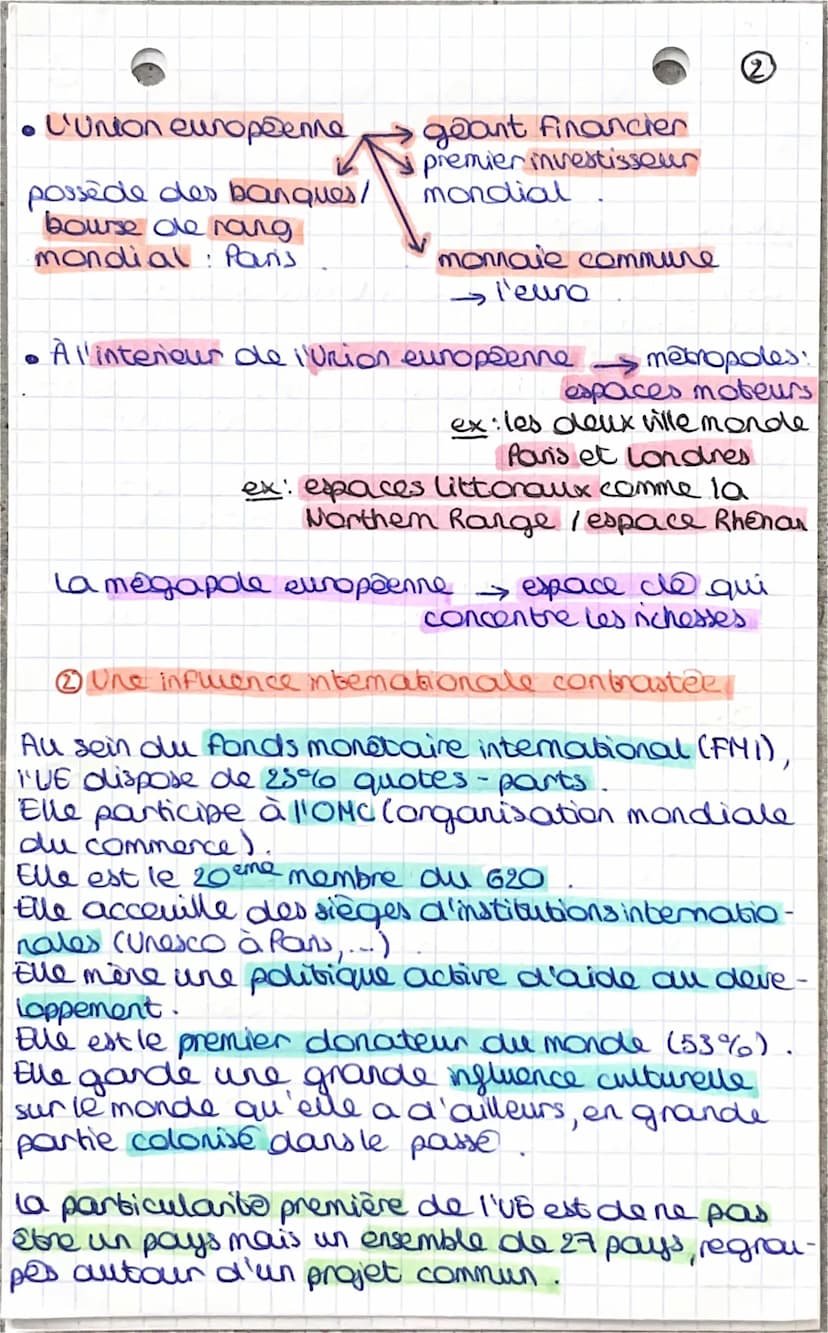 ②
• L'Union européenne → géant financier
premier investisseur
mondial.
possède des banques/
bourse de rang
mondial : Paris.
monnaie commune
→ l'euro.
• À l'interieur de l'Union européenne → métropoles:
espaces moteurs
ex: les deux ville monde
Paris et Londres
ex: espaces littoraux comme la
Northern Range / espace Rhénan
La mégapole européenne → espace clé qui
concentre les richesses
② Une influence internationale contrastée
Au sein du fonds monétaire international (FMI),
l'UE dispose de 25% quotes-parts.
Elle participe à l'OMC (organisation mondiale
du commerce).
Elle est le 20ème membre du G20.
Elle acceuille des sièges d'institutions internatio-
nales (Unesco à Paris,...).
Elle mène une politique active d'aide au deve-
loppement.
Elle est le premier donateur du monde (53%).
Elle garde une grande influence culturelle
sur le monde qu'elle a d'ailleurs, en grande
partie colonisé dans le passé.
La particularité première de l'UE est de ne pas
être un pays mais un ensemble de 27 pays, regrou-
pés autour d'un projet commun.